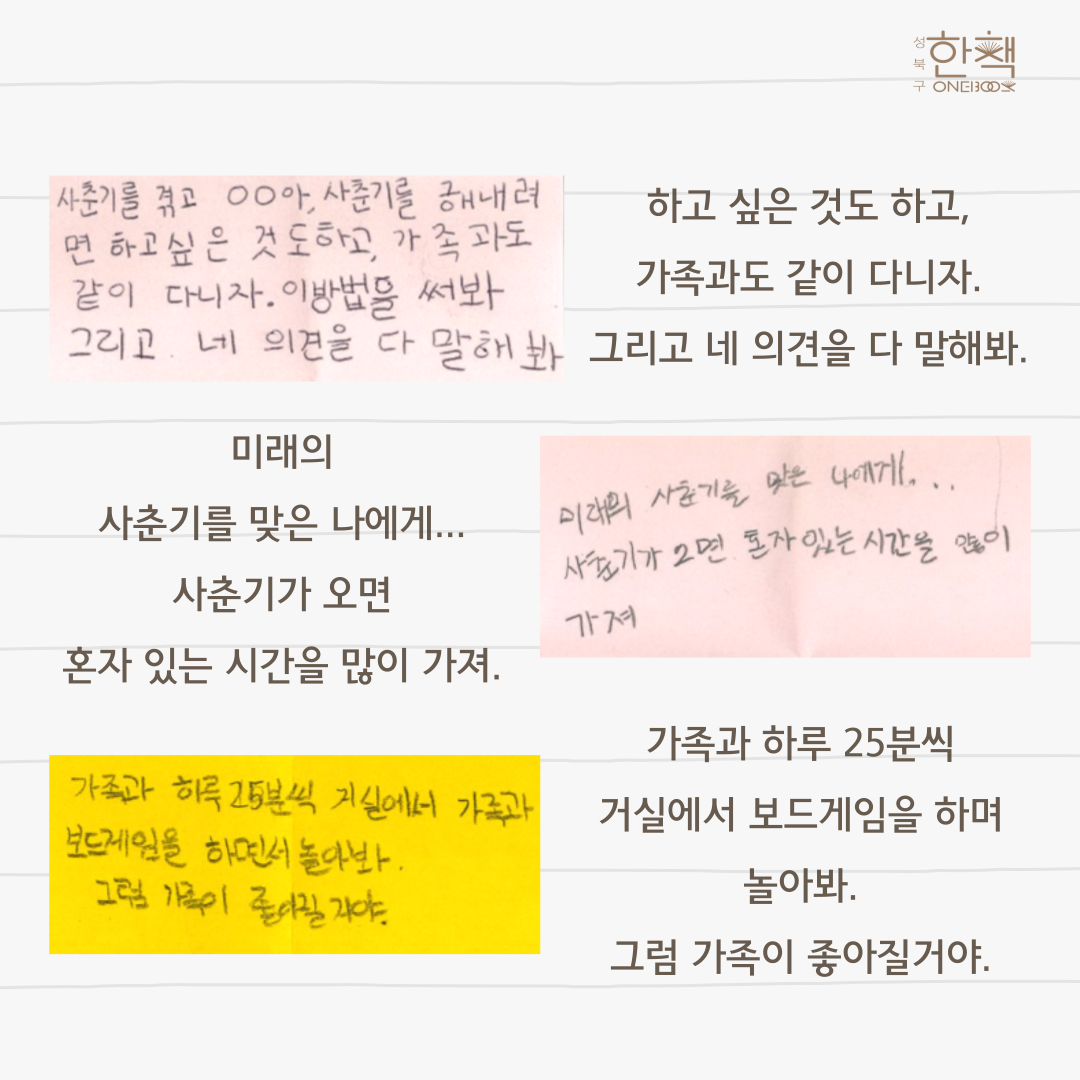 성북구
한책
ONEBOOK
사춘기를 겪고 OO아, 사춘기를 해내려
면 하고싶은 것도하고, 가족과도
같이 다니자. 이방법들 써봐
그리고 네 의견을 다 말해봐
하고 싶은 것도 하고,
가족과도 같이 다니자.
그리고 네 의견을 다 말해봐.
미래의
사춘기를 맞은 나에게...
사춘기가 오면
혼자 있는 시간을 많이 가져.
미래의 사춘기를 맞은 나에게...
사춘기가 오면 혼자 있는 시간을 많이
가져
가족과 하루 25분씩 거실에서 가족과
보드게임을 하면서 놀아봐.
그럼 가족이 좋아질 거야.
가족과 하루 25분씩
거실에서 보드게임을 하며
놀아봐.
그럼 가족이 좋아질거야.